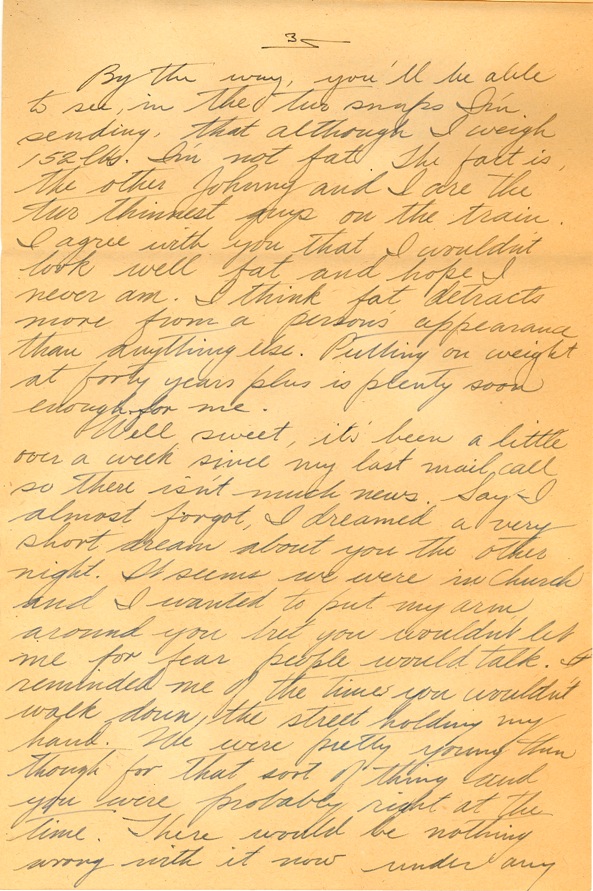 3
By the way, you'll be able
to see, in the two snaps I'm
sending, that although I weigh
152 lbs. I'm not fat. The fact is,
the other Johnny and I are the
two thinnest guys on the train.
I agree with you that I wouldn't
look well fat and hope I
never am. I think fat detracts
more from a person's appearance
than anything else. Putting on weight
at forty years plus is plenty soon
enough for me.
Well, sweet, it's been a little
over a week since my last mail call
so there isn't much news. Say - I
almost forgot, I dreamed a very
short dream about you the other
night. It seems we were in Church
and I wanted to put my arm
around you but you wouldn't let
me for fear people would talk. It
reminded me of the time you wouldn't
walk down the street holding my
hand. We were pretty young then
though for that sort of thing and
you were probably right at the
time. There would be nothing
wrong with it now under any